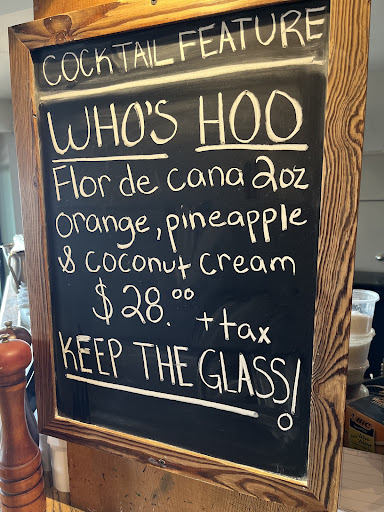 COCKTAIL FEATURE
WHO'S HOO
Flor de cana 2oz
orange, pineapple
& coconut cream
$28.00 + tax
KEEP THE GLASS!
BIC